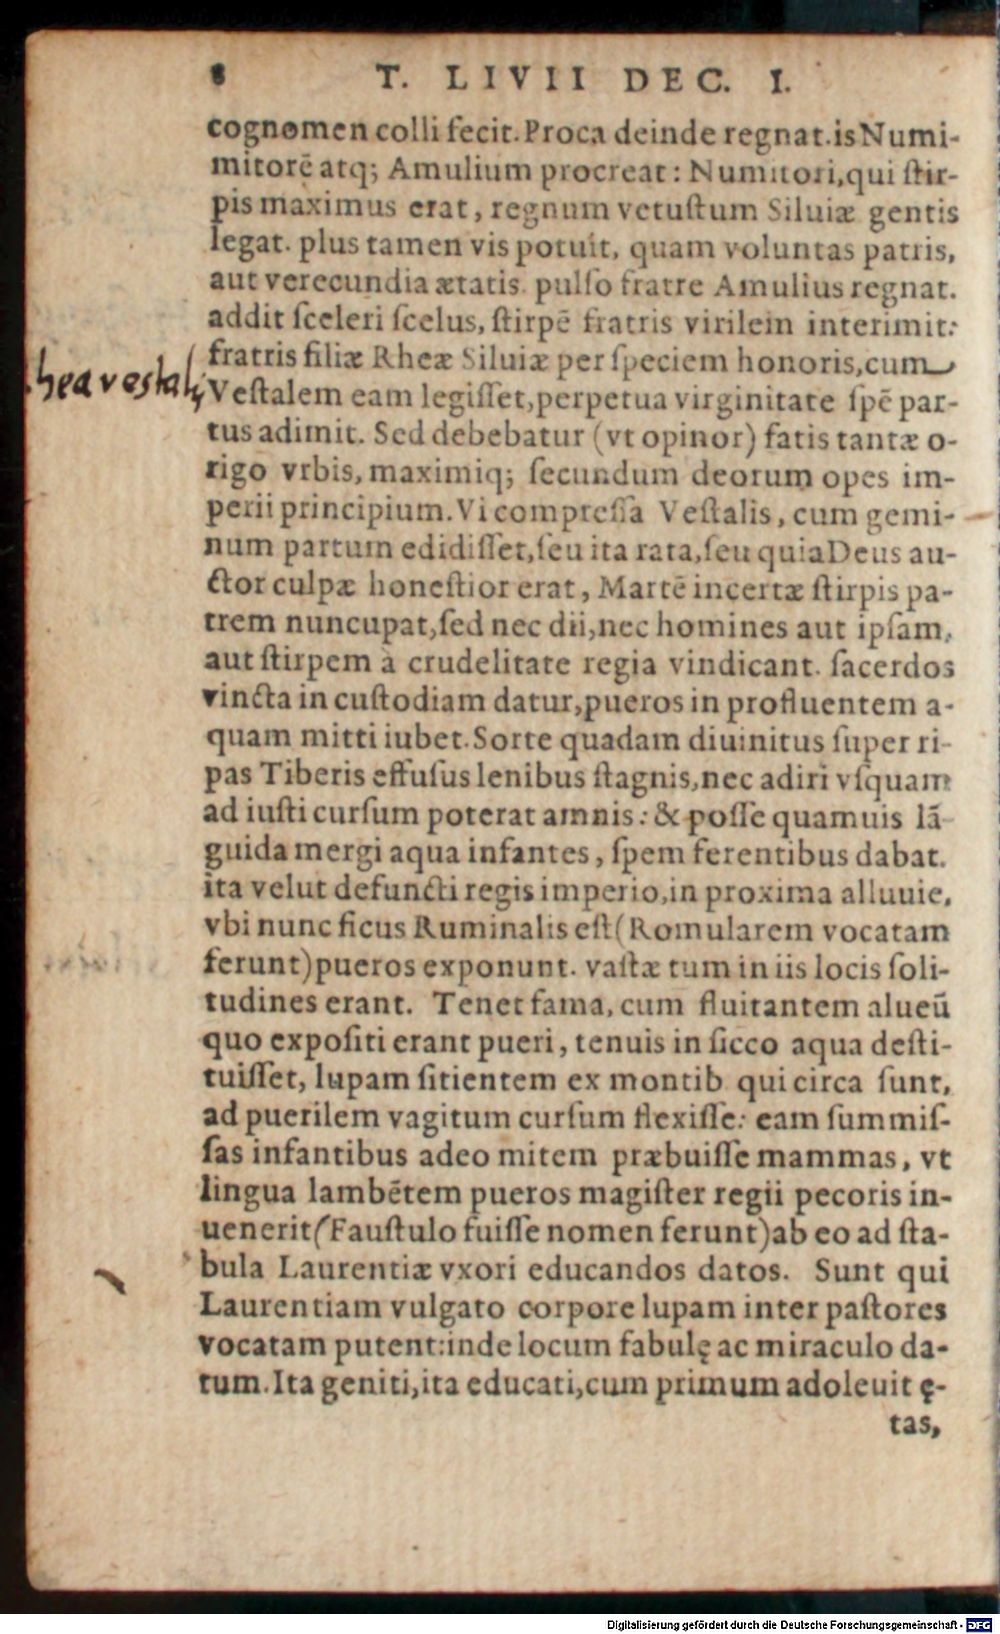 8 T. LIVII DEC. I.
cognomen colli fecit. Proca deinde regnat. is Numi-
mitorē atq; Amulium procreat: Numitori, qui ſtir-
pis maximus erat, regnum vetuſtum Siluiæ gentis
legat. plus tamen vis potuit, quam voluntas patris,
aut verecundia ætatis. pulſo fratre Amulius regnat.
addit ſceleri ſcelus, ſtirpē fratris virilem interimit:
fratris filiæ Rheæ Siluiæ per ſpeciem honoris, cum
rhea vestalis
Veſtalem eam legiſſet, perpetua virginitate ſpē par-
tus adimit. Sed debebatur (vt opinor) fatis tantæ o-
rigo vrbis, maximiq; ſecundum deorum opes im-
perii principium. Vi compreſſa Veſtalis, cum gemi-
num partum edidiſſet, ſeu ita rata, ſeu quia Deus au-
ctor culpæ honeſtior erat, Martē incertæ ſtirpis pa-
trem nuncupat, ſed nec dii, nec homines aut ipſam,
aut ſtirpem à crudelitate regia vindicant. ſacerdos
vincta in cuſtodiam datur, pueros in profluentem a-
quam mitti iubet. Sorte quadam diuinitus ſuper ri-
pas Tiberis effuſus lenibus ſtagnis, nec adiri vſquam
ad iuſti curſum poterat amnis: & poſſe quamuis lā-
guida mergi aqua infantes, ſpem ferentibus dabat.
ita velut defuncti regis imperio, in proxima alluuie,
vbi nunc ficus Ruminalis eſt (Romularem vocatam
ferunt) pueros exponunt. vaſtæ tum in iis locis ſoli-
tudines erant. Tenet fama, cum fluitantem alueū
quo expoſiti erant pueri, tenuis in ſicco aqua deſti-
tuiſſet, lupam ſitientem ex montib. qui circa ſunt,
ad puerilem vagitum curſum flexiſſe: eam ſummiſ-
ſas infantibus adeo mitem præbuiſſe mammas, vt
lingua lambētem pueros magiſter regii pecoris in-
uenerit (Fauſtulo fuiſſe nomen ferunt) ab eo ad ſta-
bula Laurentiæ vxori educandos datos. Sunt qui
Laurentiam vulgato corpore lupam inter paſtores
vocatam putent: inde locum fabulę ac miraculo da-
tum. Ita geniti, ita educati, cum primum adoleuit ę-
tas,
Digitalisierung gefördert durch die Deutsche Forschungsgemeinschaft - DFG